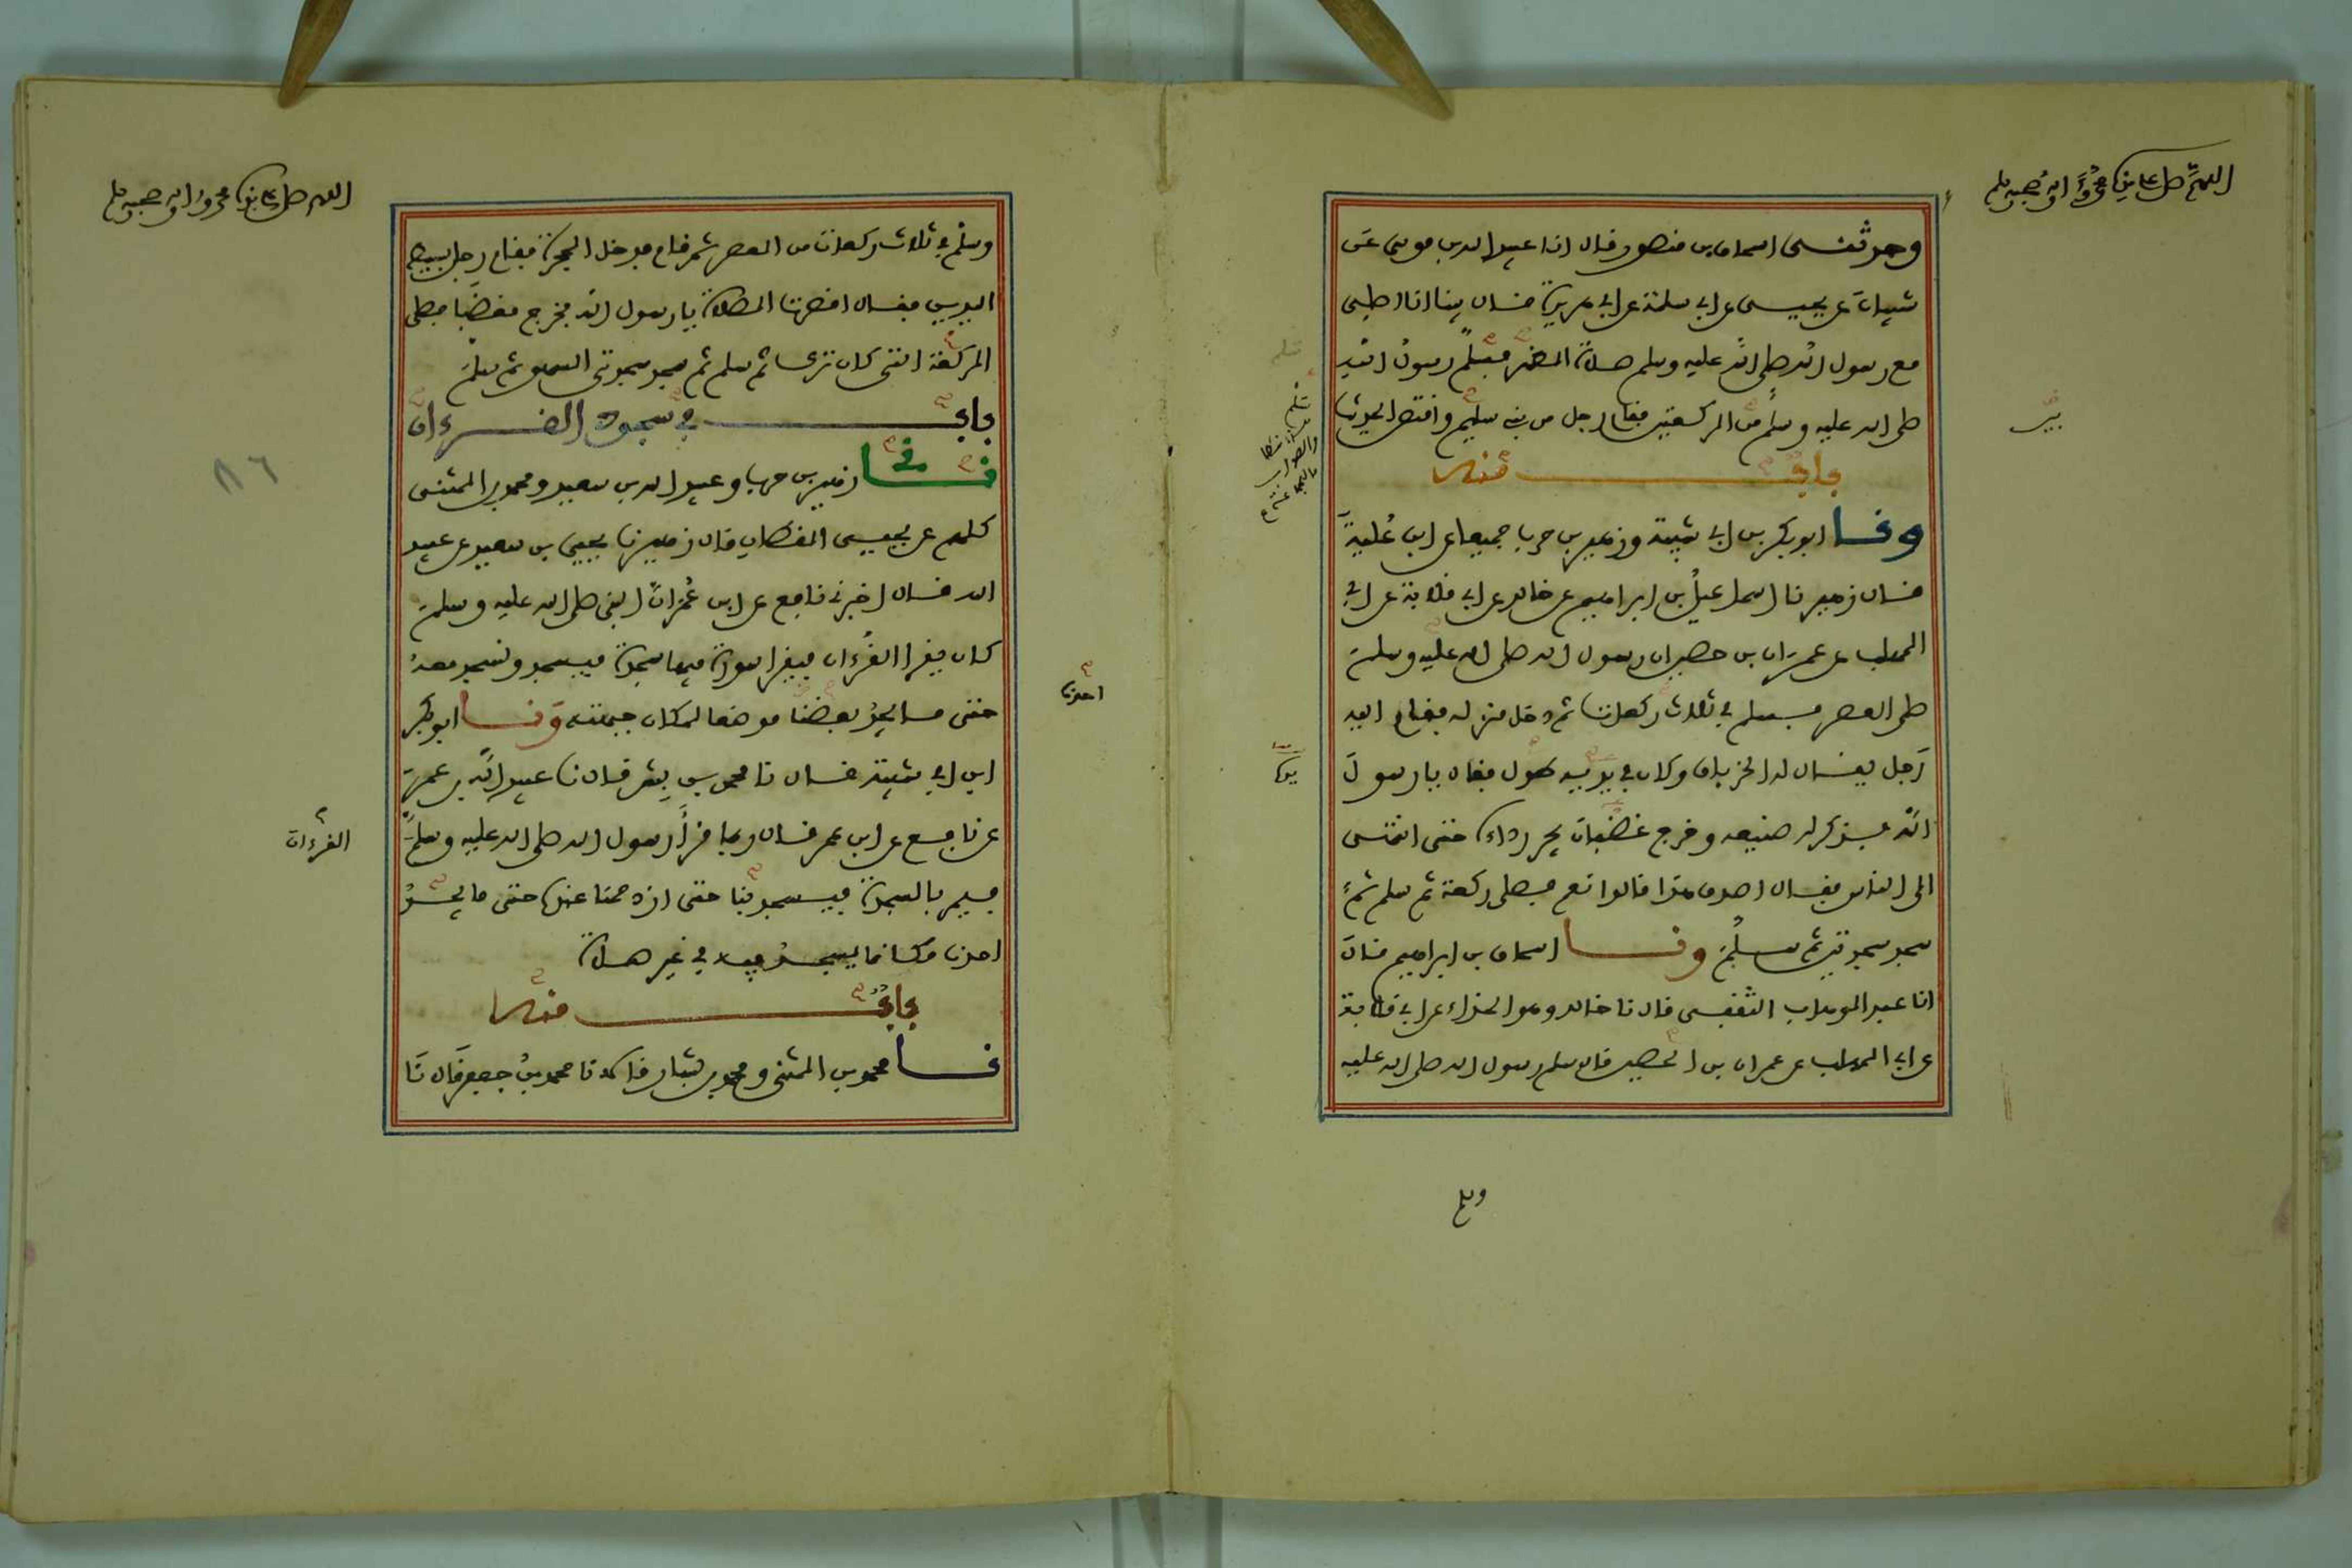 اللهم صل على سيدنا محمد وآله وصحبه وسلم
وحدثنى اسحاق بن منصور قال انا عبيد الله بن موسى عن
شيبان عن يحيى عن ابي سلمة عن ابي هريرة قال بينا انا اصلى
مع رسول الله صلى الله عليه وسلم صلاة الظهر فسلم رسول الله
صلى الله عليه وسلم من الركعتين فقام رجل من بني سليم واقتص الحديث
باب منه
ونا ابو بكر بن ابي شيبة وزهير بن حرب جميعا عن ابن علية
قال زهير نا اسماعيل بن ابراهيم عن خالد عن ابي قلابة عن ابي
المهلب عن عمران بن حصين ان رسول الله صلى الله عليه وسلم
صلى العصر فسلم في ثلاث ركعات ثم دخل منزله فقام اليه
رجل يقال له الخرباق وكان في يديه طول فقال يا رسول
الله فذكر له صنيعه وخرج غضبان يجر رداءه حتى انتهى
الى الناس فقال اصدق هذا قالوا نعم فصلى ركعة ثم سلم ثم
سجد سجدتين ثم سلم ونا اسحاق بن ابراهيم قال
انا عبد الوهاب الثقفى قال نا خالد وهو الحذاء عن ابي قلابة
عن ابي المهلب عن عمران بن الحصين قال سلم رسول الله صلى الله عليه
وسلم
اللهم صل على سيدنا محمد وآله وصحبه وسلم
وسلم في ثلاث ركعات من العصر ثم قام فدخل الحجرة فقام رجل بسيط
اليدين فقال اقصرت الصلاة يا رسول الله فخرج مغضبا فصلى
الركعة التى كان ترك ثم سلم ثم سجد سجدتى السهو ثم سلم
باب في سجود القرءان
نا زهير بن حرب وعبيد الله بن سعيد ومحمد بن المثنى
كلهم عن يحيى القطان قال زهير نا يحيى بن سعيد عن عبيد
الله قال اخبرني نافع عن ابن عمر ان النبي صلى الله عليه وسلم
كان يقرا القرءان فيقرا سورة فيها سجدة فيسجد ونسجد معه
حتى ما يجد بعضنا موضعا لمكان جبهته ونا ابو بكر
احدنا
ابن ابي شيبة قال نا محمد بن بشر قال نا عبيد الله بن عمر
عن نافع عن ابن عمر قال ربما قرا رسول الله صلى الله عليه وسلم
القرءان
فيمر بالسجدة فيسجد بنا حتى ازدحمنا عنده حتى ما يجد
احدنا مكانا يسجد فيه في غير صلاة
باب منه
نا محمد بن المثنى ومحمد بن بشار قالا نا محمد بن جعفر قال نا
٨٦